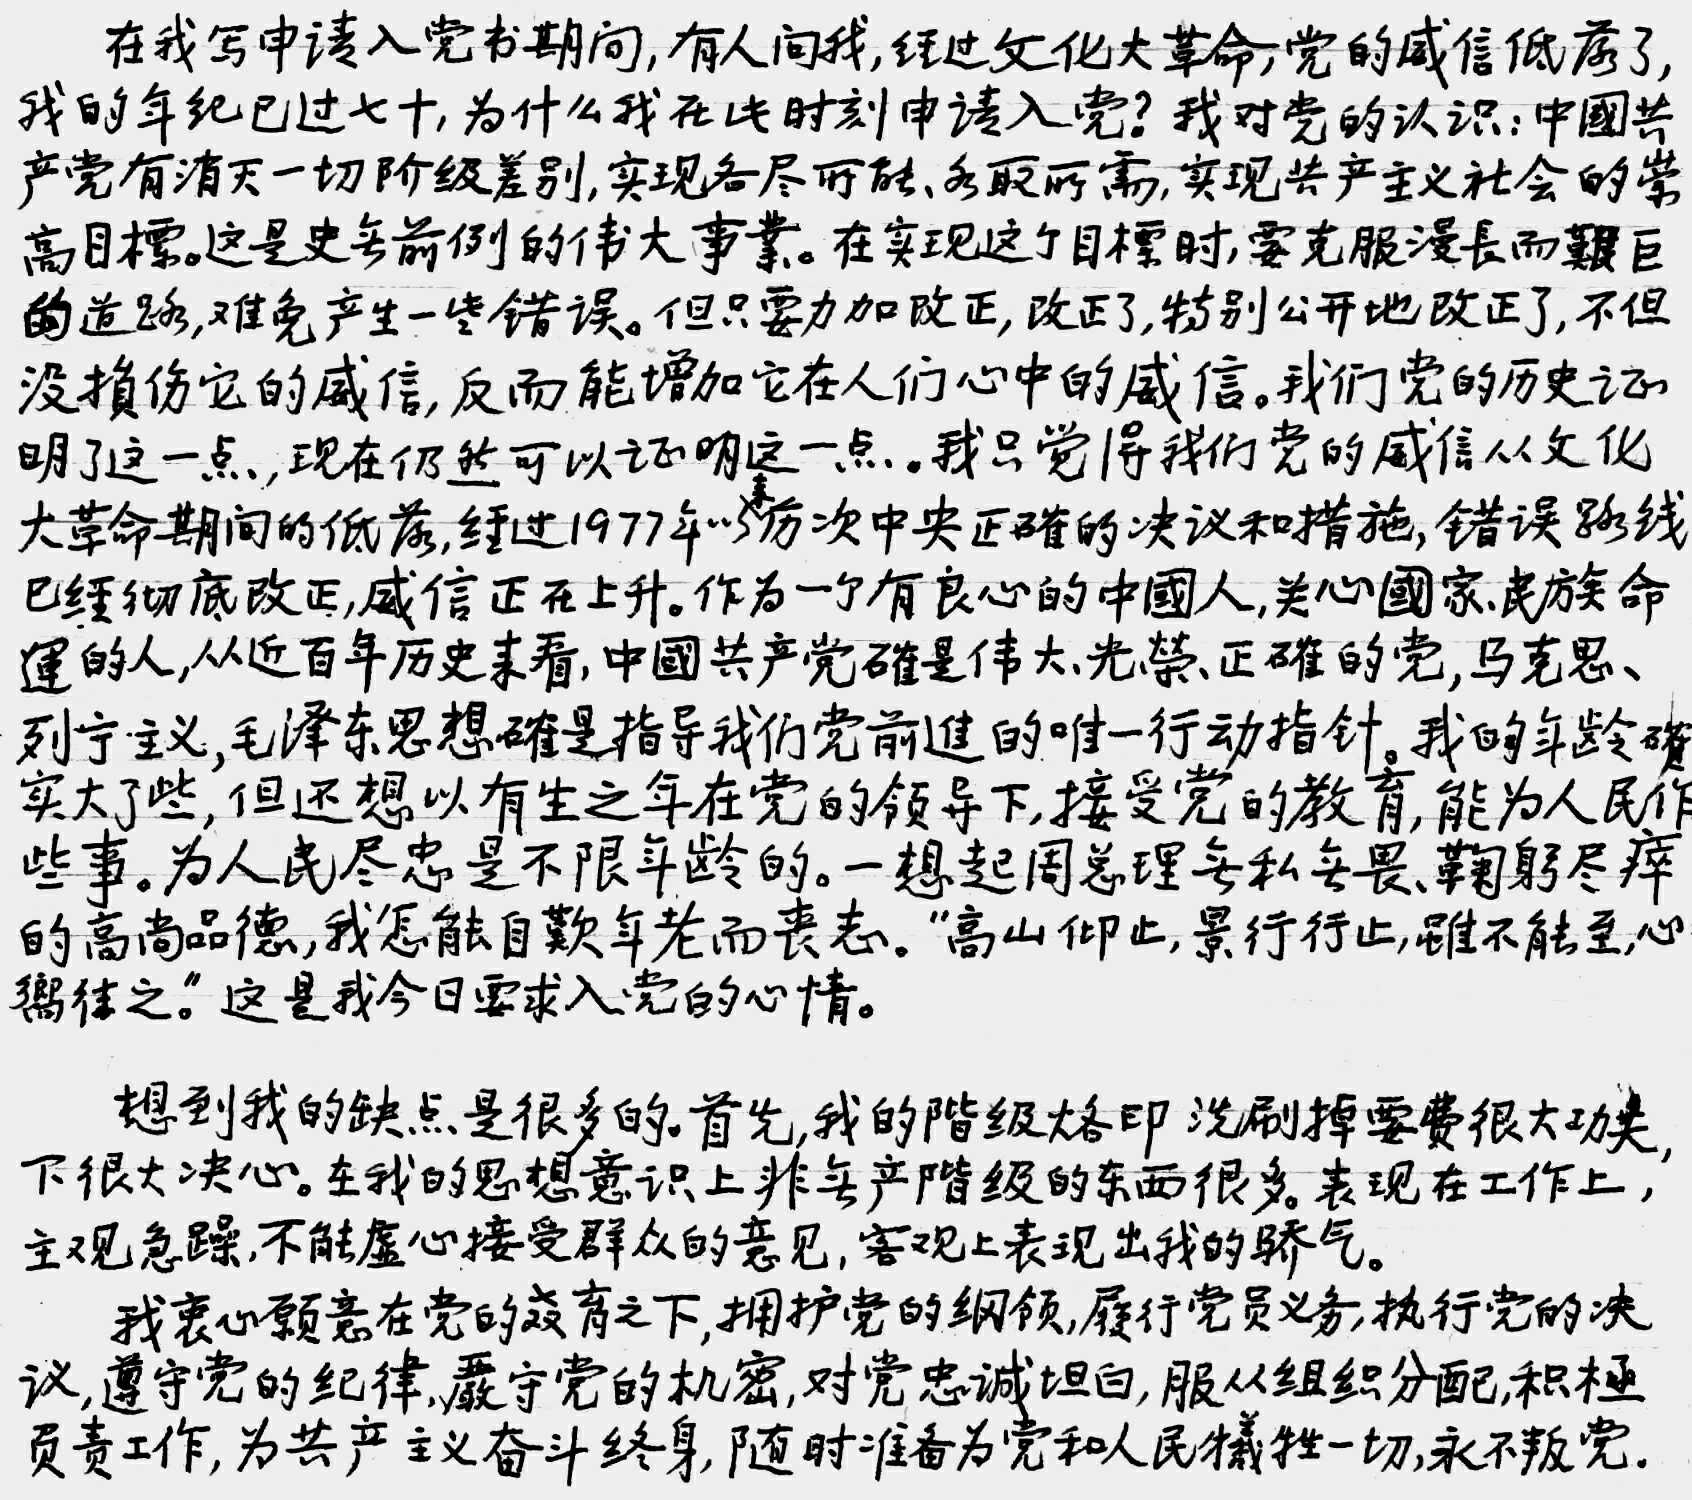 在我写申请入党书期间,有人问我,经过文化大革命,党的威信低落了,
我的年纪已过七十,为什么我在此时刻申请入党?我对党的认识:中國共
产党有消灭一切阶级差别,实现各尽所能、各取所需,实现共产主义社会的崇
高目標。这是史无前例的伟大事業。在实现这个目標时,要克服漫長而艱巨
的道路,难免产生一些错误。但只要力加改正,改正了,特别公开地改正了,不但
没損伤它的威信,反而能增加它在人们心中的威信。我们党的历史证
明了这一点,现在仍然可以证明这一点。我只觉得我们党的威信从文化
大革命期间的低落,經过1977年以来历次中央正確的决议和措施,错误路线
已經彻底改正,威信正在上升。作为一个有良心的中國人,关心國家、民族命
運的人,从近百年历史来看,中國共产党確是伟大、光榮、正確的党,马克思、
列宁主义,毛泽东思想確是指导我们党前進的唯一行动指针。我的年龄確
实大了些,但还想以有生之年在党的领导下,接受党的教育,能为人民作
些事。为人民尽忠是不限年龄的。一想起周总理无私无畏、鞠躬尽瘁
的高尚品德,我怎能自歎年老而丧志。“高山仰止,景行行止,雖不能至,心
嚮往之。”这是我今日要求入党的心情。
想到我的缺点是很多的。首先,我的階级烙印洗刷掉要费很大功夫,
下很大决心。在我的思想意识上非无产階级的东西很多。表现在工作上,
主观急躁,不能虚心接受群众的意见,客观上表现出我的骄气。
我衷心願意在党的教育之下,拥护党的纲领,履行党员义务,执行党的决
议,遵守党的纪律,嚴守党的机密,对党忠诚坦白,服从组织分配,积極
负责工作,为共产主义奋斗终身,随时准备为党和人民犧牲一切,永不叛党.